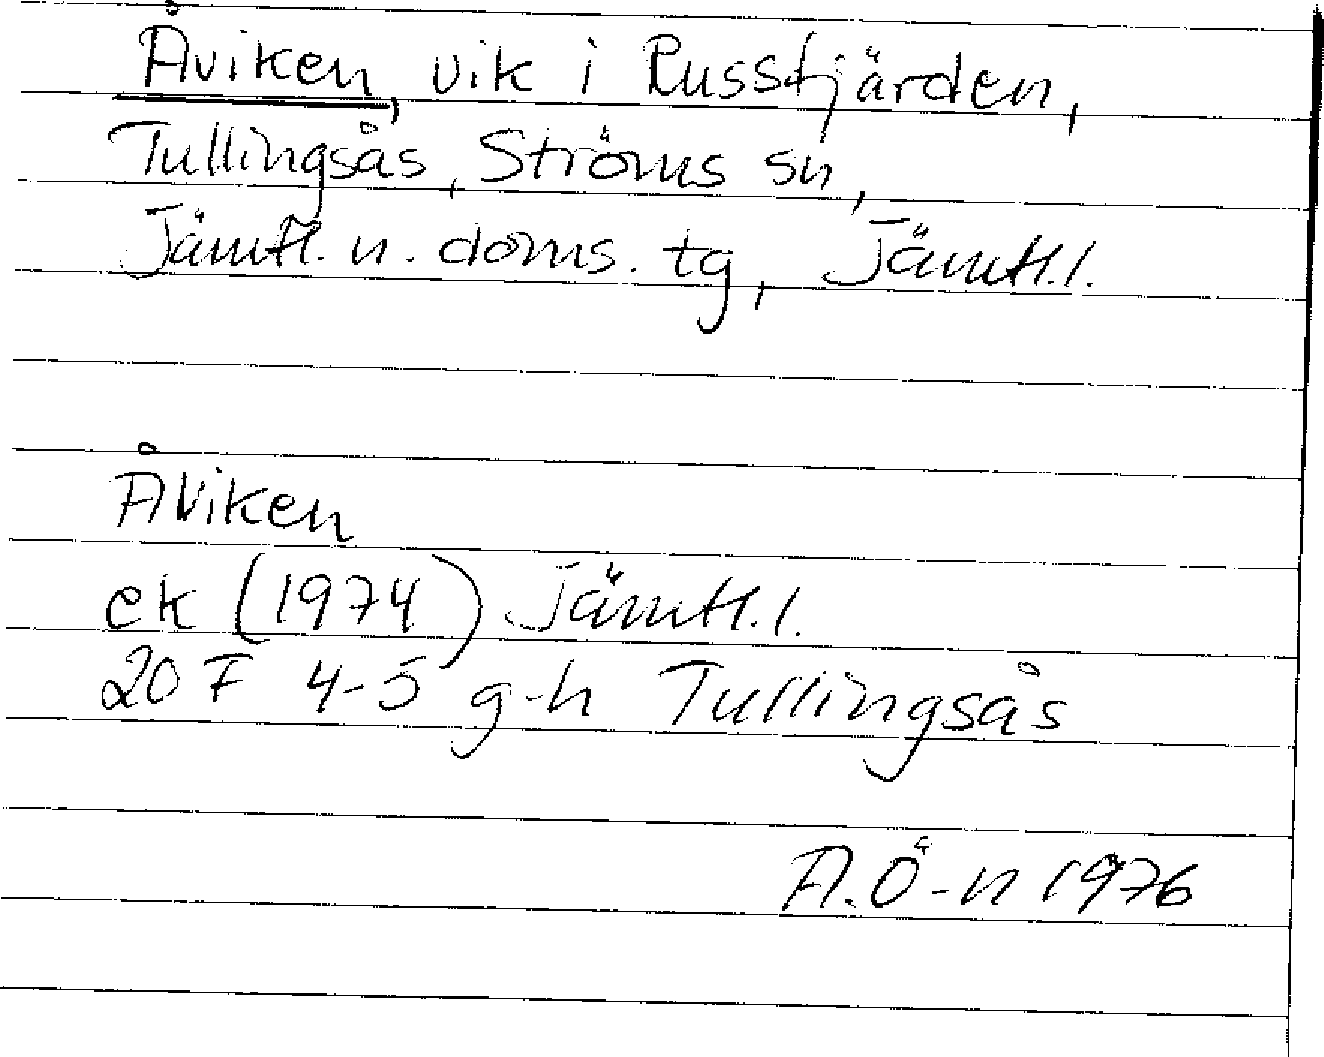 Åviken, vik i Russfjärden,
Tullingsås, Ströms sn,
Jämtl. n. doms. tg, Jämtl. l.
Åviken
ek (1974) Jämtl. l.
20 F 4-5 g-h Tullingsås
A. Ö-n 1976